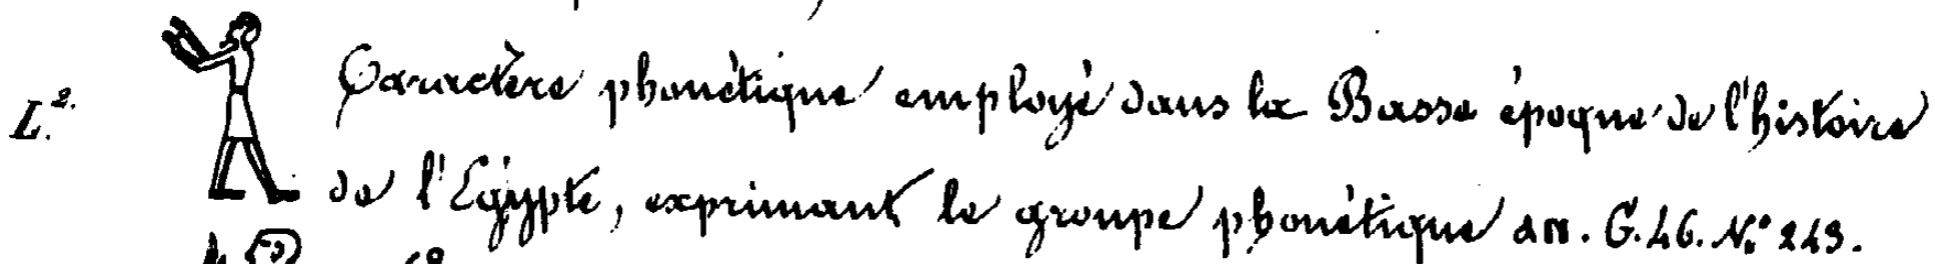 L.² Caractère phonétique employé dans la Basse époque de l'histoire
de l'Egypte, exprimant le groupe phonétique an. G. 46. N.º 243.